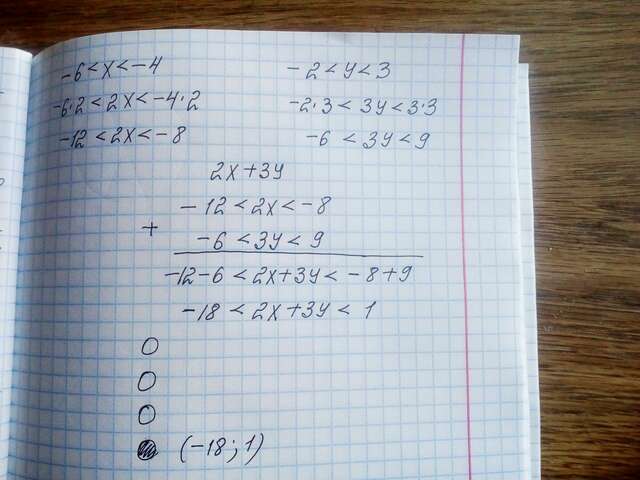 -6 < x < -4
-2 < y < 3
-6·2 < 2x < -4·2
-2·3 < 3y < 3·3
-12 < 2x < -8
-6 < 3y < 9
2x+3y
-12 < 2x < -8
+
-6 < 3y < 9
-12-6 < 2x+3y < -8+9
-18 < 2x+3y < 1
(-18; 1)